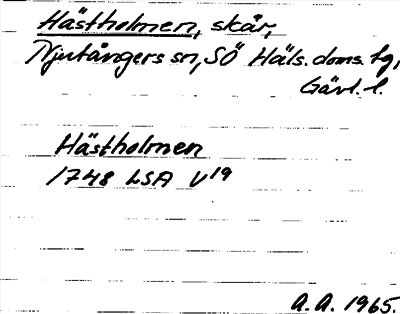 Hästholmen, skär,
Njutångers sn, SÖ Häls. doms. tg,
Gävl. l.
Hästholmen
1748 LSA V19
A.A. 1965.